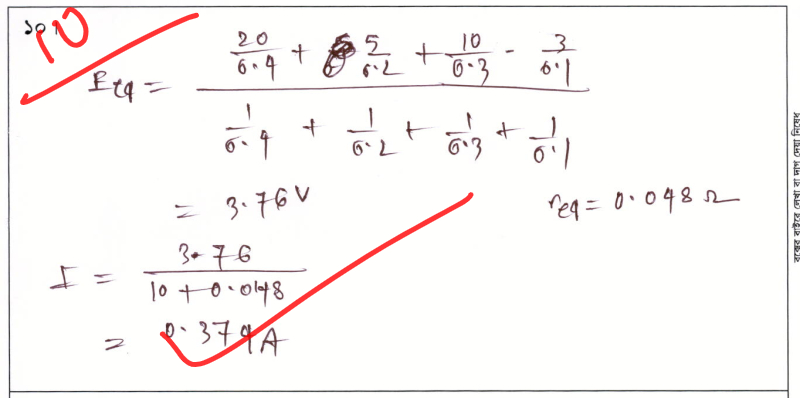 ১০।
10
E_eq = (20/0.4 + 5/0.2 + 10/0.3 - 3/0.1) / (1/0.4 + 1/0.2 + 1/0.3 + 1/0.1)
= 3.76 V
r_eq = 0.048 Ω
I = 3.76 / (10 + 0.048)
= 0.374 A
বক্সের বাইরে লেখা বা দাগ দেয়া নিষেধ